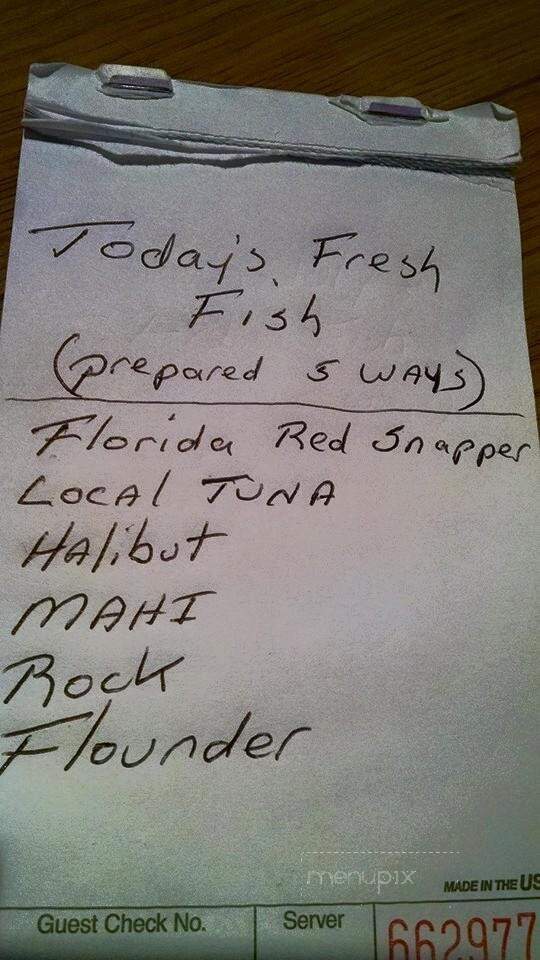 Today's Fresh
Fish
(prepared 5 WAYS)
Florida Red Snapper
LOCAl TUNA
HAlibut
MAHI
Rock
Flounder
menupix
MADE IN THE US
Guest Check No. Server 662977